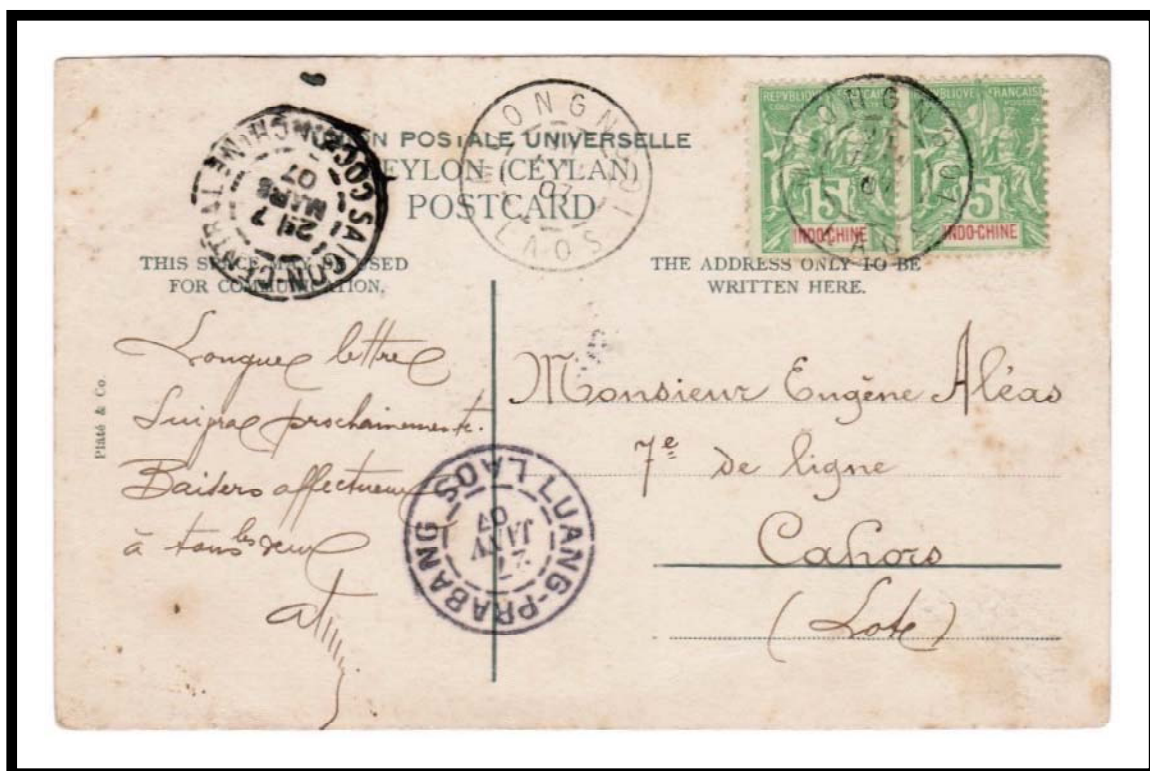 UNION POSTALE UNIVERSELLE
CEYLON (CEYLAN)
POSTCARD
THIS SPACE MAY BE USED
FOR COMMUNICATION,
THE ADDRESS ONLY TO BE
WRITTEN HERE.
SAIGON-CENTRAL COCHINCHINE
7
MARS
07
LAOS
07
REPVBLIQVE FRANÇAISE
5
INDO-CHINE
REPVBLIQVE FRANÇAISE
5
INDO-CHINE
LAOS
07
Longue lettre
suivra prochainement.
Baisers affectueux
à tous les deux
Platé & Co.
LUANG-PRABANG LAOS
27
JANV
07
Monsieur Eugène Aléas
7e de ligne
Cahors
(Lot)